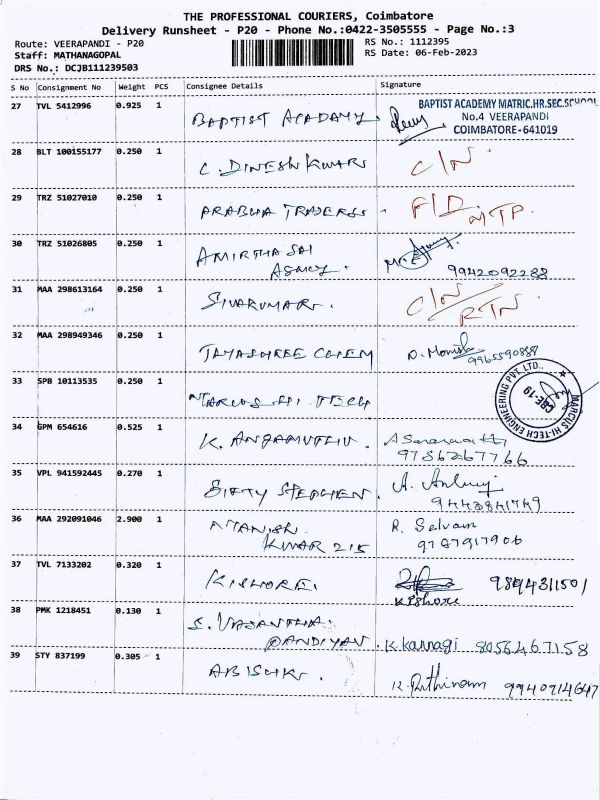 THE PROFESSIONAL COURIERS, Coimbatore
Delivery Runsheet - P20 - Phone No.:0422-3505555 - Page No.:3
Route: VEERAPANDI - P20
RS No.: 1112395
Staff: MATHANAGOPAL
RS Date: 06-Feb-2023
DRS No.: DCJB111239503
S No Consignment No Weight PCS Consignee Details Signature
27 TVL 5412996 0.925 1 BAPTIST ACADEMY.
BAPTIST ACADEMY MATRIC.HR.SEC.SCHOOL
No.4 VEERAPANDI
COIMBATORE-641019
28 BLT 100155177 0.250 1 C. DINESH KUMAR C/N
29 TRZ 51027010 0.250 1 PRABHA TRADERS. F/D. MTP.
30 TRZ 51026805 0.250 1 AMIRTHA SAI
9942092288
31 MAA 298613164 0.250 1 SIVAKUMAR. C/N
RTN.
32 MAA 298949346 0.250 1 JAYASHREE CHEM D. Monish
9965590888
33 SPB 10113535 0.250 1 MARCUS HI TECH
MARCUS HI-TECH ENGINEERING PVT. LTD.,
CBE-19
34 GPM 654616 0.525 1 K. ANGAMUTHU.
9786267766
35 VPL 941592445 0.270 1 STEPHEN.
36 MAA 292091046 2.900 1 MANISH
KUMAR 215
R. Selvam
9787917906
37 TVL 7133202 0.320 1 KISHORE. 9894311501
Kishore
38 PMK 1218451 0.130 1 S. VASANTHA
PANDIYAN. K. Kannagi 8056467158
39 STY 837199 0.305 1 ABISHK. R. Rathinam 9940714647